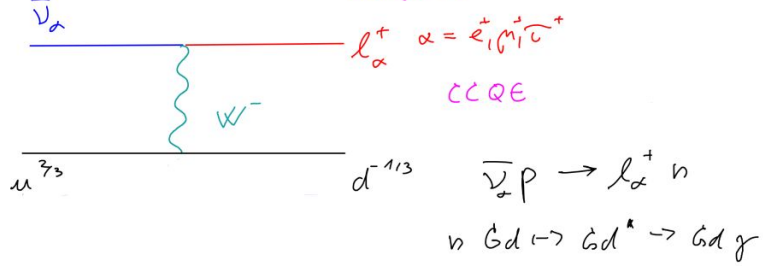 ν̄_α
ℓ_α^+ α = e^+, μ^+, τ^+
CCQE
W^-
u^{2/3} d^{-1/3}
ν̄_α p → ℓ_α^+ n
n Gd → Gd^* → Gd γ